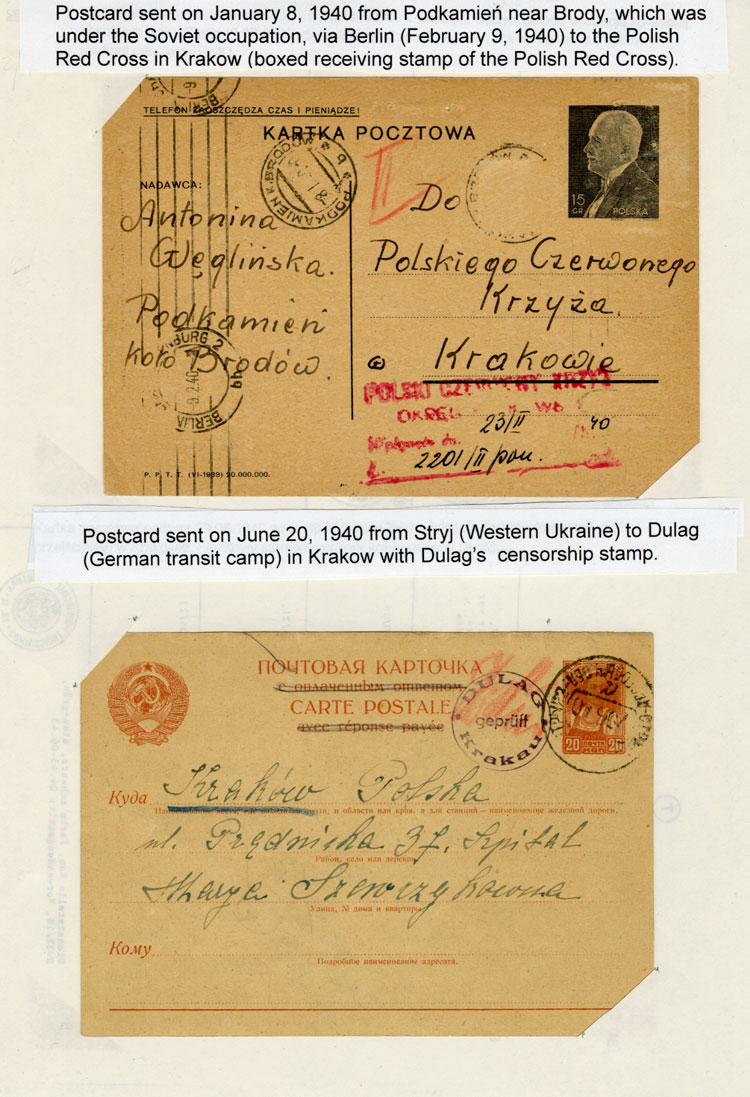 Postcard sent on January 8, 1940 from Podkamień near Brody, which was
under the Soviet occupation, via Berlin (February 9, 1940) to the Polish
Red Cross in Krakow (boxed receiving stamp of the Polish Red Cross).
TELEFON ZAOSZCZĘDZA CZAS I PIENIĄDZE!
KARTKA POCZTOWA
PODKAMIEŃ K. BRODÓW
15
GR POLSKA
NADAWCA:
Antonina
Węglińska.
Podkamień
koło Brodów.
II
Do
Polskiego Czerwonego
Krzyża
w Krakowie
BERLIN
9.2.40
POLSKI CZERWONY KRZYŻ
OKRĘG
Wpłynęło dn. 23/II 40
L. 2201/II/pou.
P. P. T. T. (VI-1939) 20.000.000.
Postcard sent on June 20, 1940 from Stryj (Western Ukraine) to Dulag
(German transit camp) in Krakow with Dulag's censorship stamp.
ПОЧТОВАЯ КАРТОЧКА
с оплаченным ответом
CARTE POSTALE
avec réponse payée
DULAG
geprüft
Krakau
20 ПОЧТА 20
КОП
Куда Kraków Polska
Наименование места, и области или края, а для станций — наименование железной дороги.
ul. Prądnicka 37. Szpital
Район, село или деревня
Marya Szewczykówna
Улица, № дома и квартиры
Кому
Подробное наименование адресата.